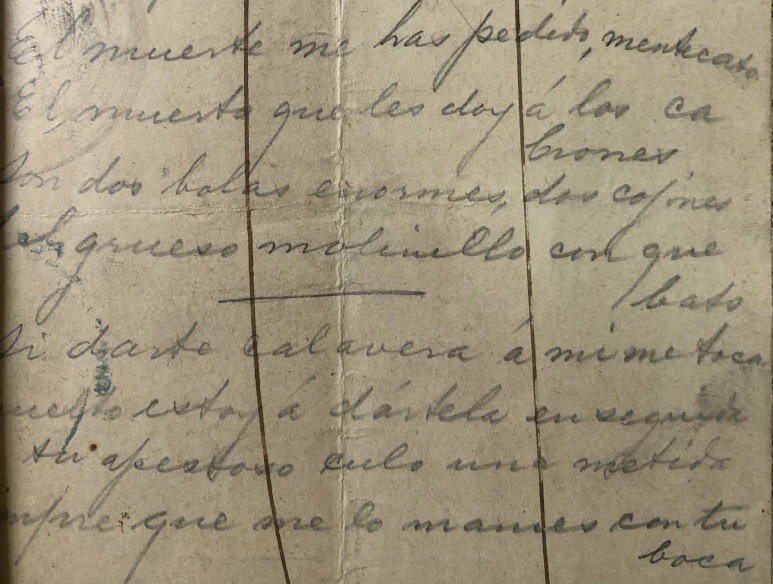 El muerte me has pedido, mentecato
El, muerto que les doy á los ca
brones
Son dos bolas enormes, dos cojones
el grueso molinillo con que
bato
Si darte calavera á mi me toca
uelto estoy á dártela en seguida
tu apestoso culo una metida
mpre que me lo mames con tu
boca